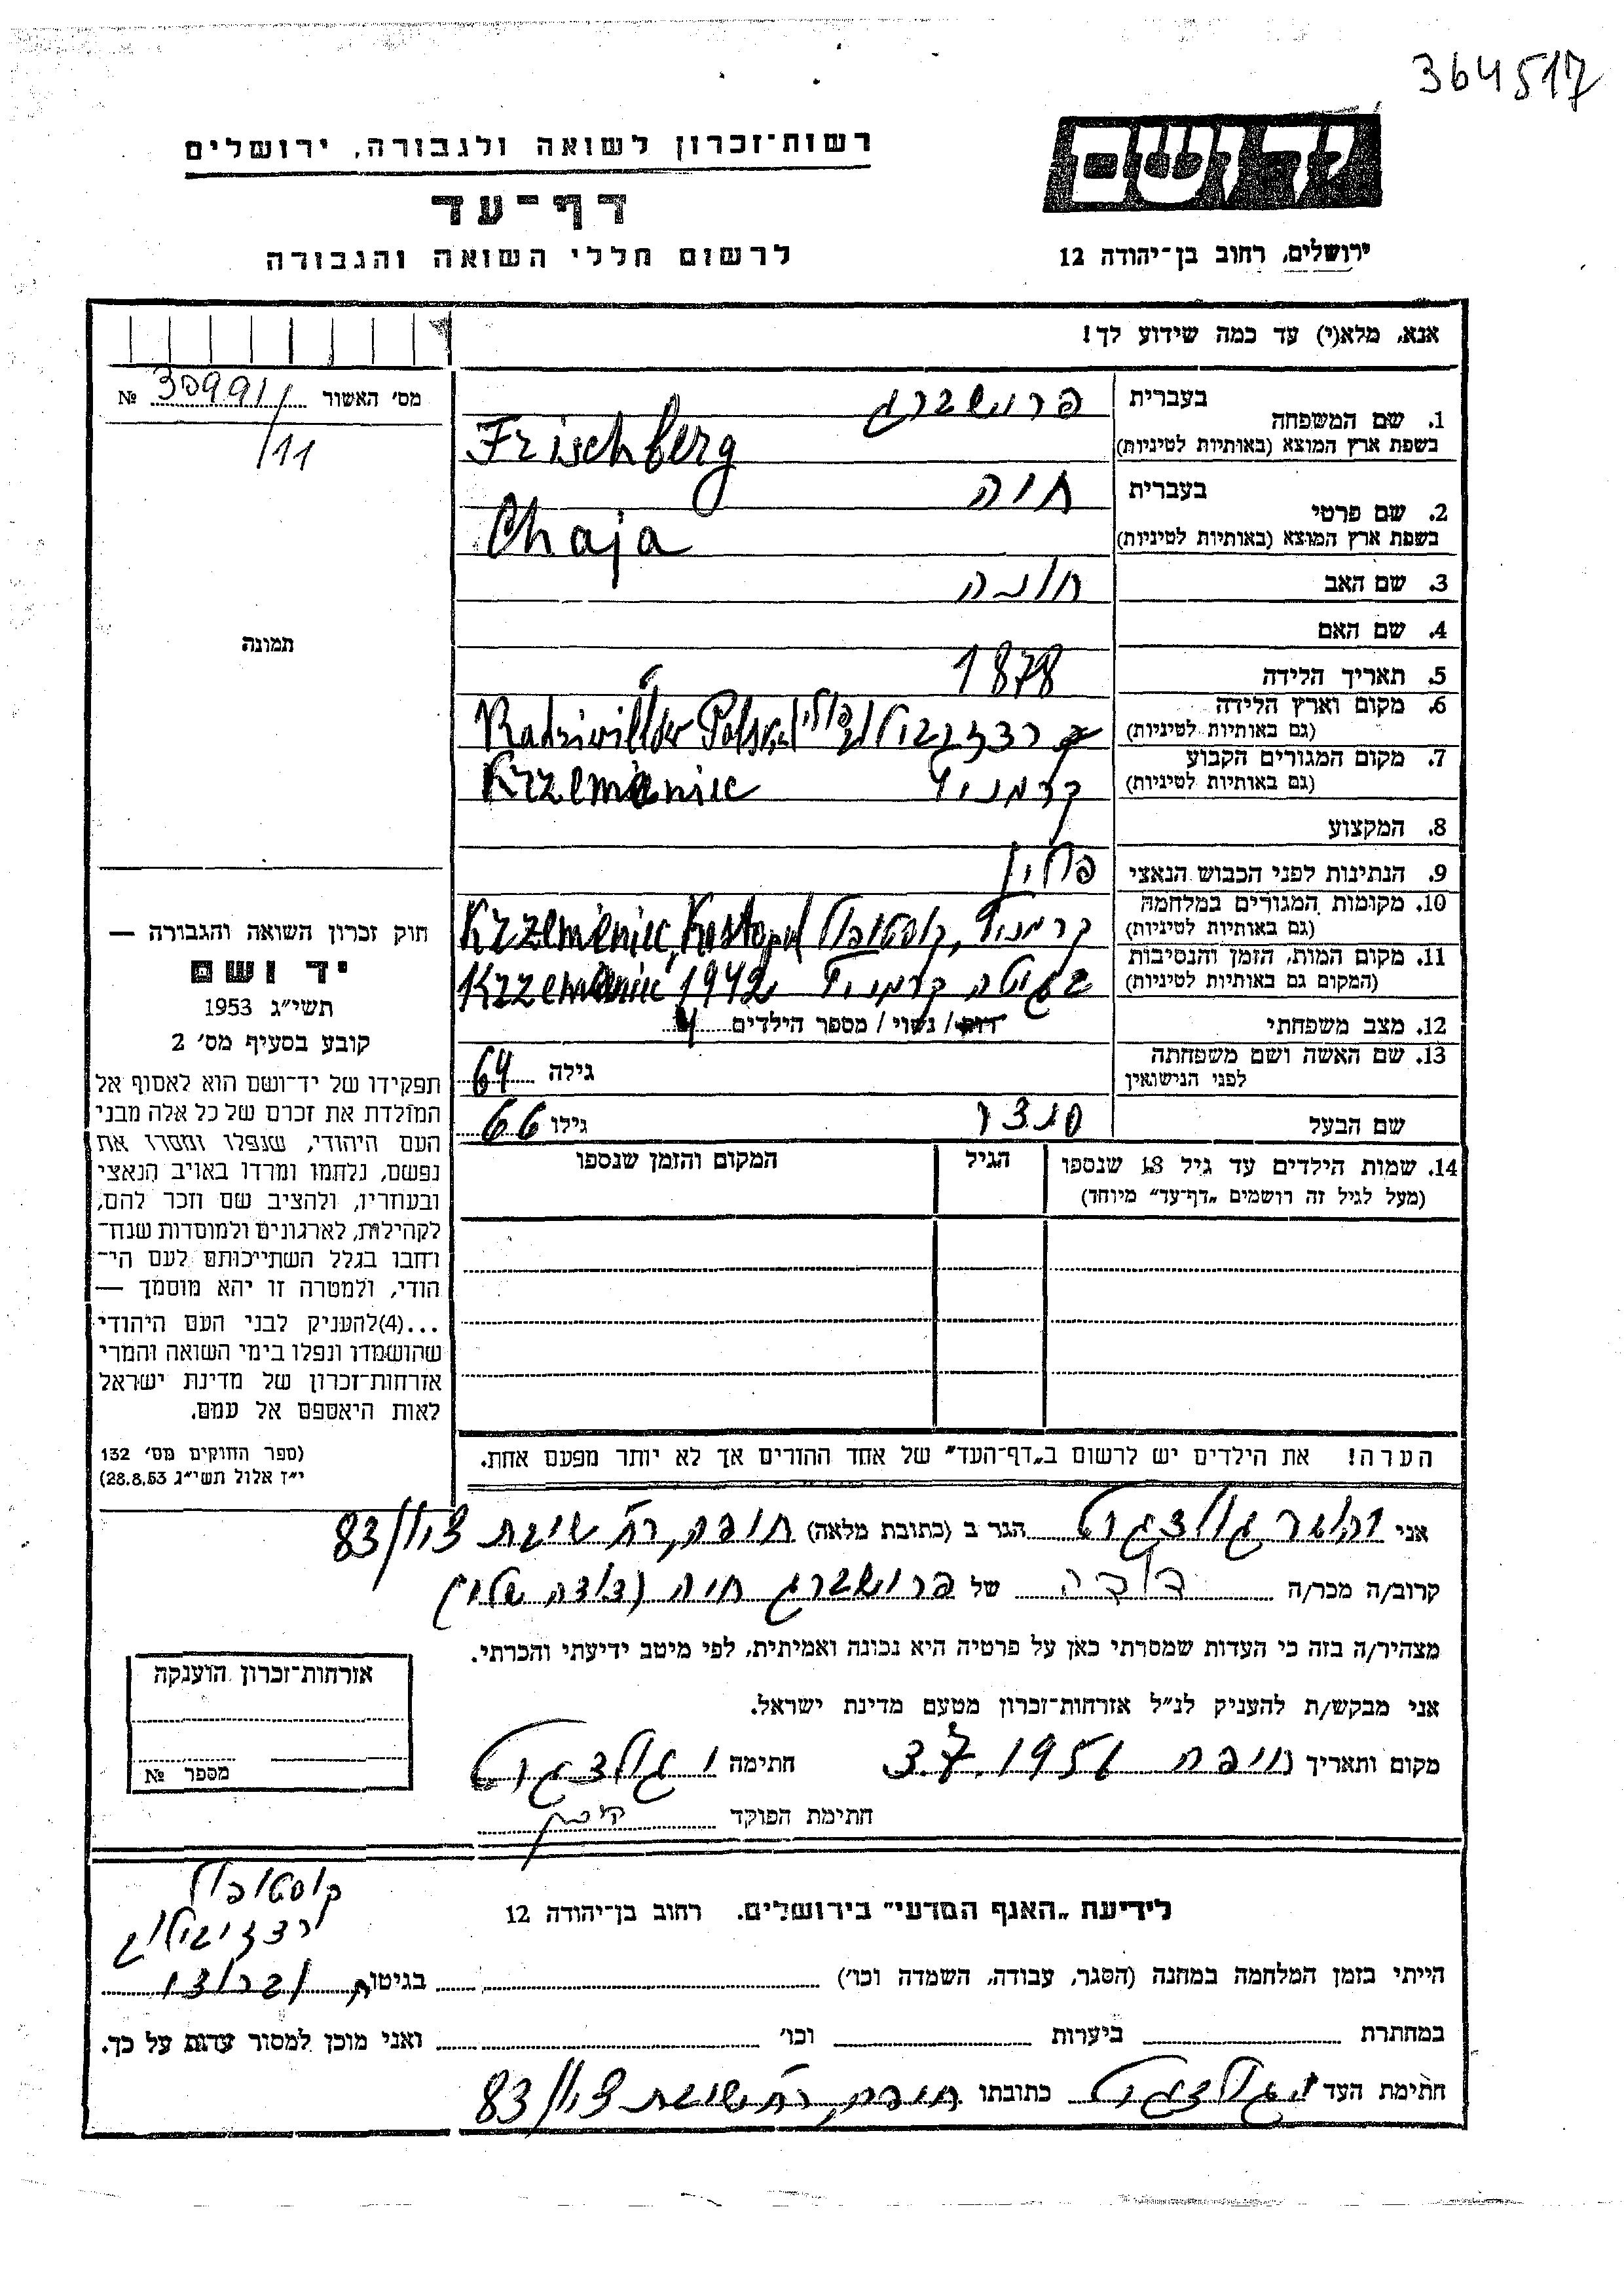 364517
רשות־זכרון לשואה ולגבורה, ירושלים
דף־עד
לרשום חללי השואה והגבורה
יד ושם
ירושלים, רחוב בן־יהודה 12
אנא, מלא(י) עד כמה שידוע לך!
מס' האשור 30991 №
/11
תמונה
חוק זכרון השואה והגבורה —
יד ושם
תשי״ג 1953
קובע בסעיף מס' 2
תפקידו של יד־ושם הוא לאסוף אל
המולדת את זכרם של כל אלה מבני
העם היהודי, שנפלו ומסרו את
נפשם, נלחמו ומרדו באויב הנאצי
ובעוזריו, ולהציב שם וזכר להם,
לקהילות, לארגונים ולמוסדות שנח־
רבו בגלל השתייכותם לעם הי־
הודי, ולמטרה זו יהא מוסמך —
...(4)להעניק לבני העם היהודי
שהושמדו ונפלו בימי השואה והמרי
אזרחות־זכרון של מדינת ישראל
לאות היאספם אל עמם.
(ספר החוקים מס' 132
י״ז אלול תשי״ג 28.8.53)
1. שם המשפחה
בעברית פרישברג
בשפת ארץ המוצא (באותיות לטיניות) Frischberg
2. שם פרטי
בעברית חיה
בשפת ארץ המוצא (באותיות לטיניות) Chaja
3. שם האב חונה
4. שם האם
5. תאריך הלידה 1878
6. מקום וארץ הלידה
(גם באותיות לטיניות) רדזיבילוב פולין Radziwiłłów Polska
7. מקום המגורים הקבוע
(גם באותיות לטיניות) קרמניץ Krzemieniec
8. המקצוע
9. הנתינות לפני הכבוש הנאצי פולין
10. מקומות המגורים במלחמה
(גם באותיות לטיניות) קרמניץ, קוסטופול Krzemieniec, Kostopol
11. מקום המות, הזמן והנסיבות
(המקום גם באותיות לטיניות) בגיטו קרמניץ Krzemieniec 1942
12. מצב משפחתי רווק / נשוי / מספר הילדים 4
13. שם האשה ושם משפחתה
לפני הנישואין גילה 64
שם הבעל גילו 66
14. שמות הילדים עד גיל 18 שנספו הגיל המקום והזמן שנספו
(מעל לגיל זה רושמים „דף־עד״ מיוחד)
הערה! את הילדים יש לרשום ב„דף־העד״ של אחד ההורים אך לא יותר מפעם אחת.
אני גולדגרט הגר ב (כתובת מלאה) חיפה, רח' שיבת ציון 83/
קרוב/ה מכר/ה דודה של פרישברג חיה (דודה שלי)
מצהיר/ה בזה כי העדות שמסרתי כאן על פרטיה היא נכונה ואמיתית, לפי מיטב ידיעתי והכרתי.
אני מבקש/ת להעניק לנ״ל אזרחות־זכרון מטעם מדינת ישראל.
מקום ותאריך חיפה 3.7.1956 חתימה י גולדגרט
חתימת הפוקד
אזרחות־זכרון הוענקה
מספר №
לידיעת „האגף המדעי״ בירושלים. רחוב בן־יהודה 12
קוסטופול
רדזיבילוב
הייתי בזמן המלחמה במחנה (הסגר, עבודה, השמדה וכו') בגיטו
במחתרת ביערות וכו' ואני מוכן למסור עדות על כך.
חתימת העד י גולדגרט כתובתו חיפה, רח' שיבת ציון 83/